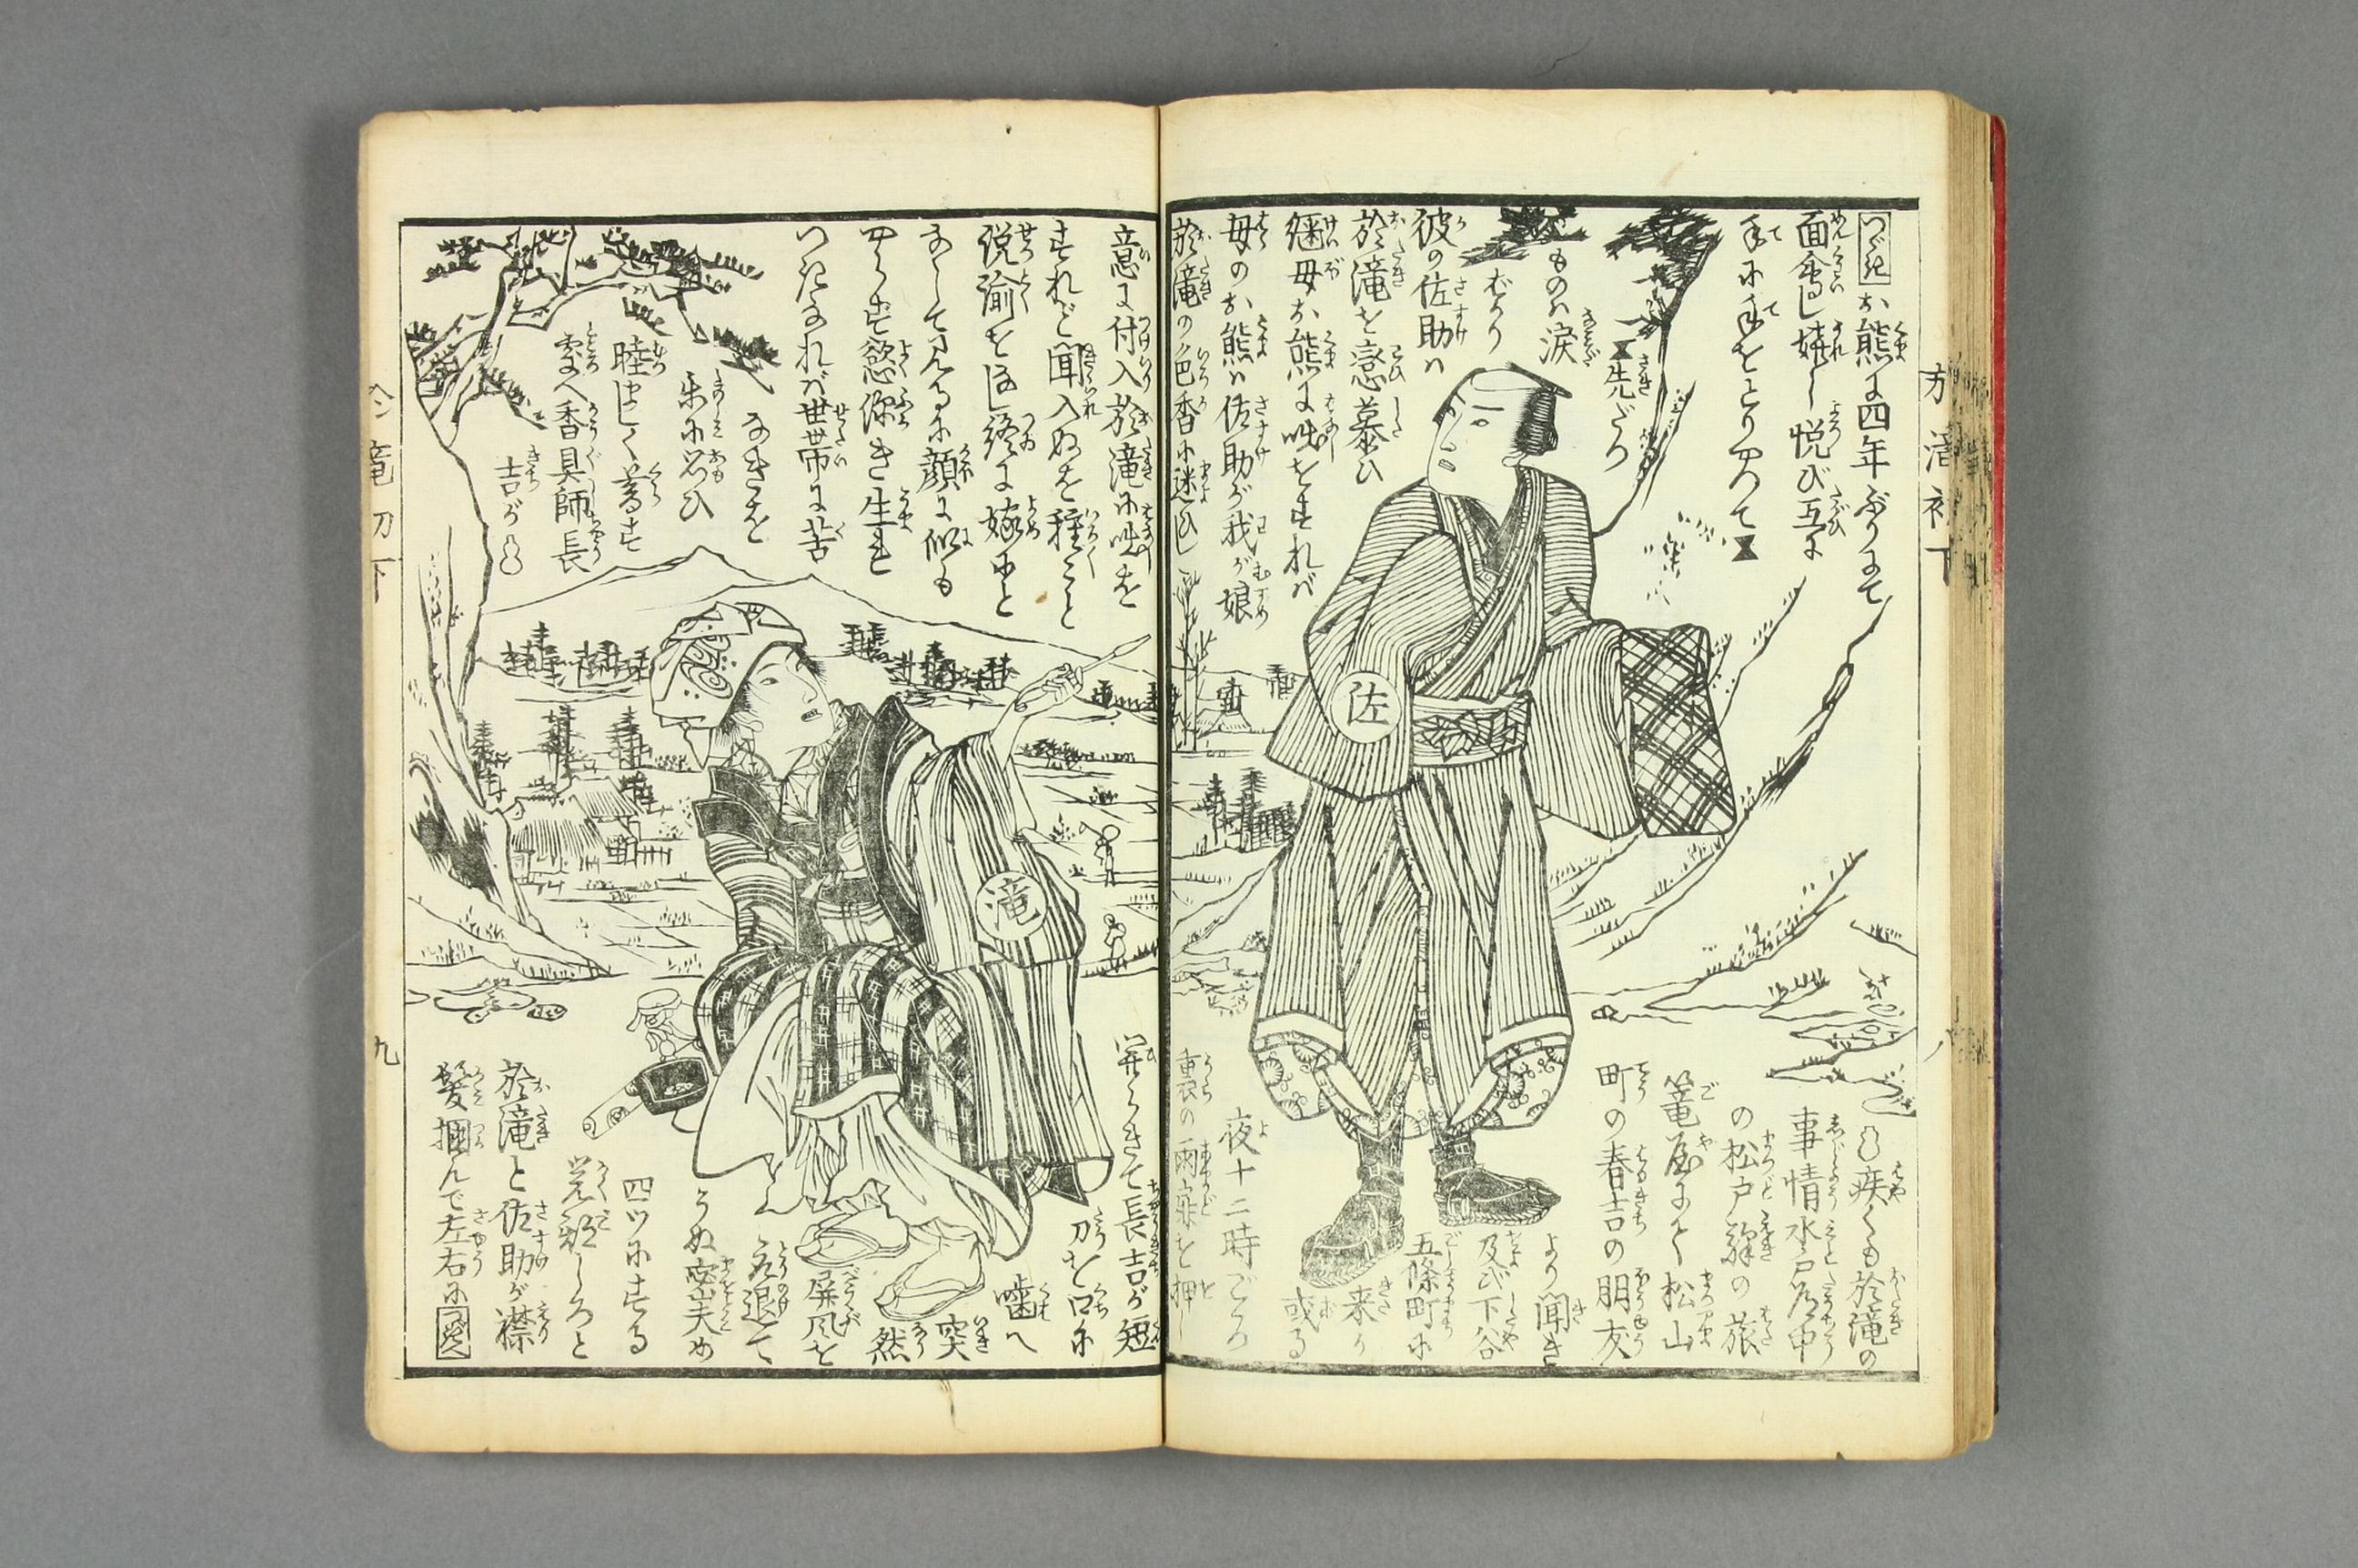 つゞき お熊は四年ぶりにて
面會し嬉しく悦び互に
手に手をとりつゝて
先だつ
ものハ涙
むり
彼の佐助ハ
於滝を戀慕ひ
継母お熊に咄をすれバ
母のお熊ハ佐助が我が娘
於滝の色香に迷ひし
意に付入於滝に咄を
すれど聞入ぬを種〻と
説諭をなし終に嫁にと
なして見るに顔に似も
やらず慾深き生れ
つきなれバ世帯に苦
なきを
楽に思ひ
睦ましく暮す
處へ香具師長
吉が
疾くも於滝の
事情水戸道中
の松戸驛の旅
篭屋にて松山
町の春吉の朋友
より聞き
及び下谷
五條町に
来り
或る
夜十二時ごろ
裏の雨戸を押し
開らきて長吉が短
刀を口に
噛へ
突
然
屏風を
引退て
うぬ密夫め
四ツにする
覚悟しろと
於滝と佐助が襟
髪掴んで左右に つゞく
佐
滝
下
九